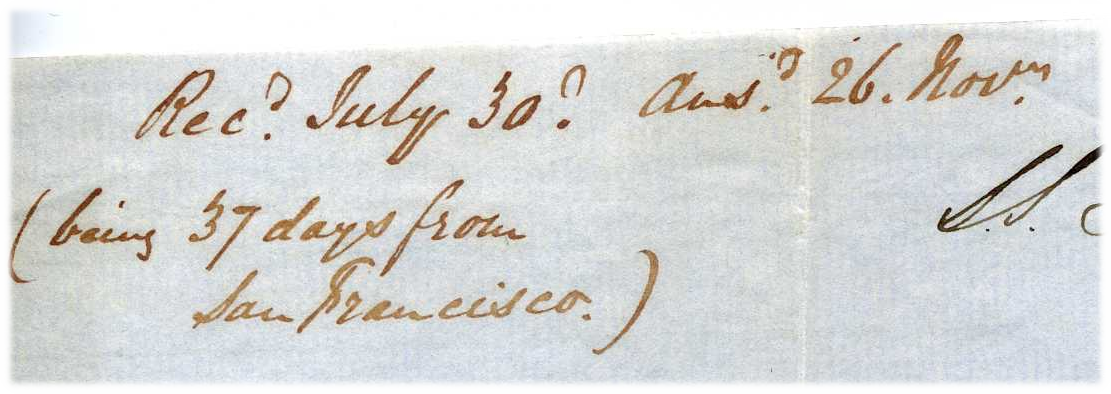 Rec.d July 30.d Ans.d 26. Nov.r
S.S.
(being 37 days from
San Francisco.)